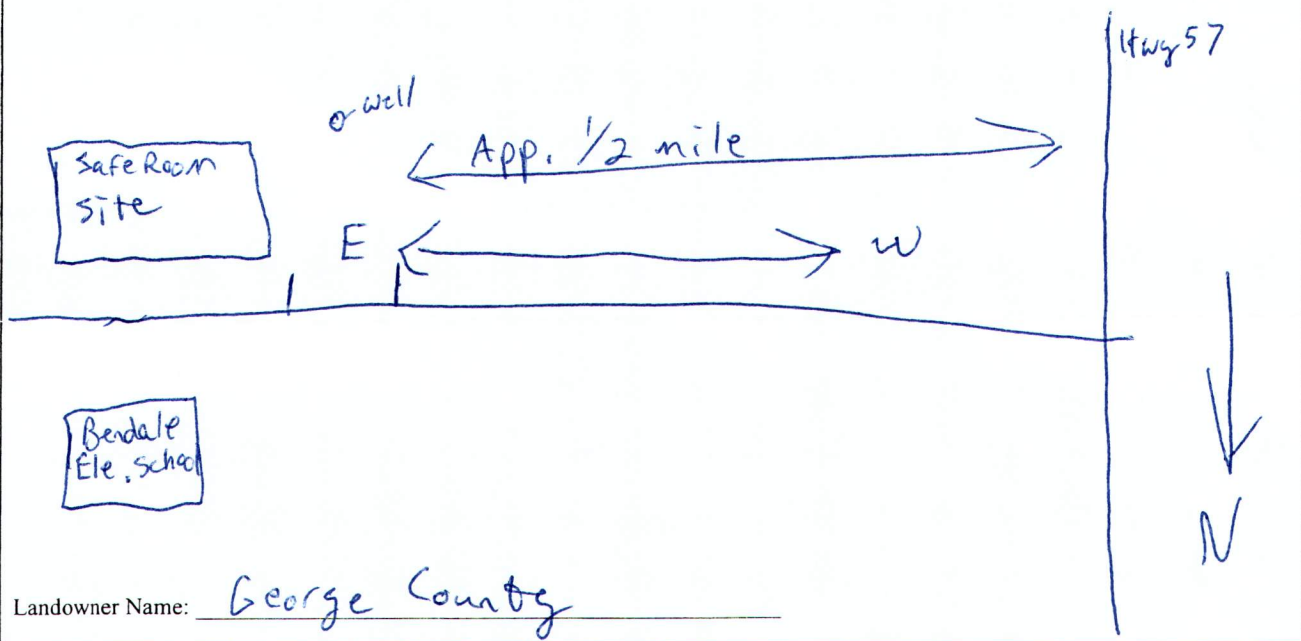 Hwy 57
well
App. 1/2 mile
Safe Room
Site
E
W
Bendale
Ele. School
N
Landowner Name: George County